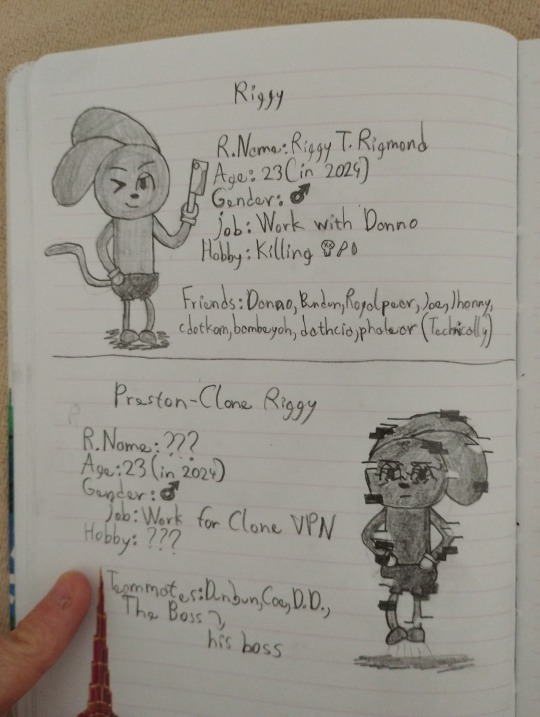 Riggy
R.Name: Riggy T. Rigmond
Age: 23 (in 2024)
Gender: ♂
Job: Work with Donno
Hobby: Killing
Friends: Donno, Bunbun, Royalpeer, Joe, Jhonny,
cdotkom, bombayoh, dothcio, photeor (Technically)
Preston-Clone Riggy
R.Name: ???
Age: 23 (in 2024)
Gender: ♂
Job: Work for Clone VPN
Hobby: ???
Teammates: Dunbun, Coe, D.D.,
The Boss
his boss